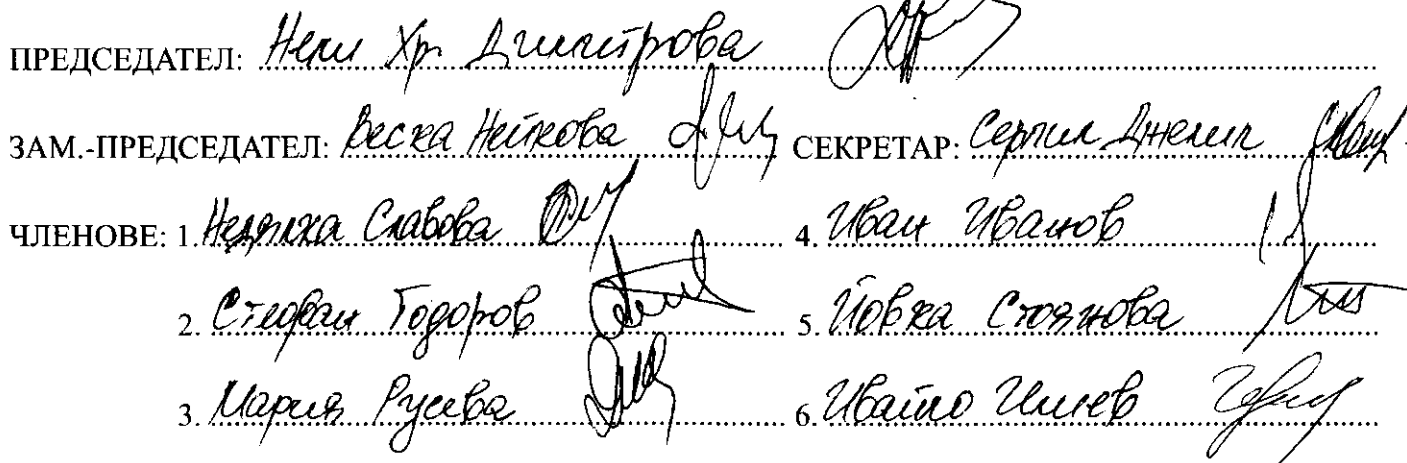 ПРЕДСЕДАТЕЛ: Нели Хр. Димитрова
ЗАМ.-ПРЕДСЕДАТЕЛ: Веска Нейкова СЕКРЕТАР: Сергил Джелил
ЧЛЕНОВЕ: 1. Недялка Славова 4. Иван Иванов
2. Стефан Тодоров 5. Йовка Стоянова
3. Мария Русева 6. Ивайло Илиев